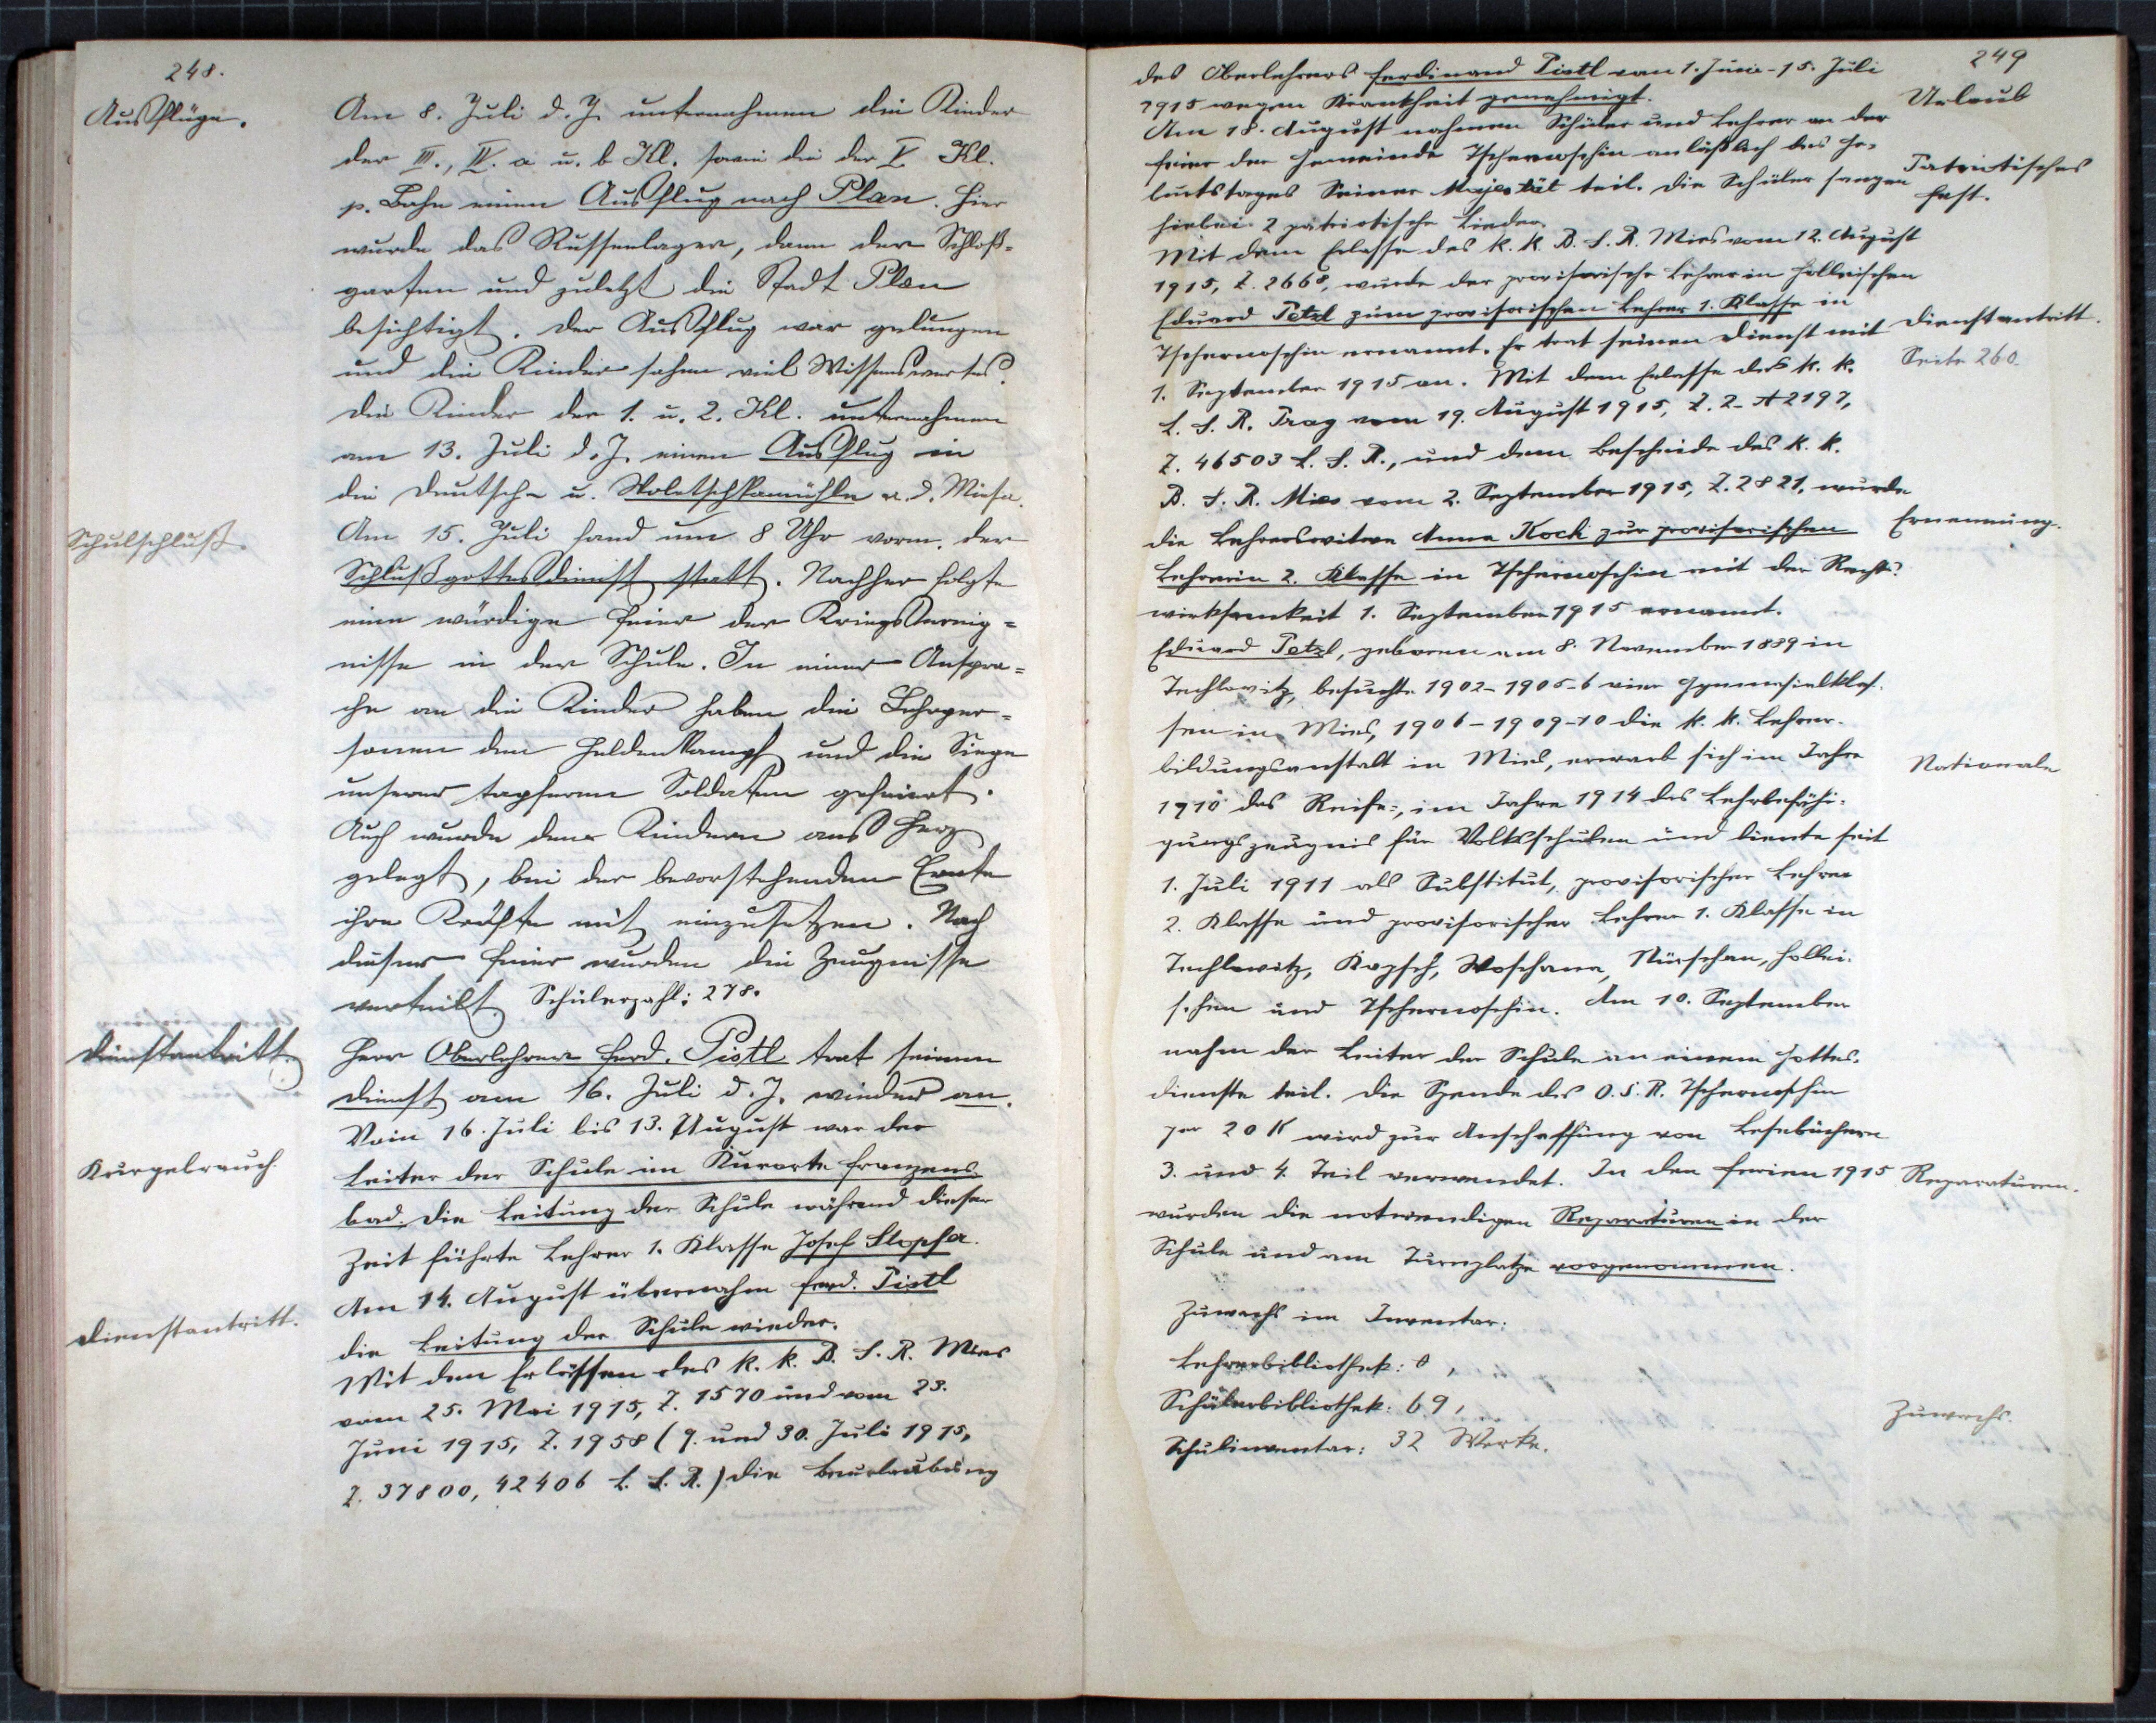 248.
Ausflüge.
Am 8. Juli d. J. unternahmen die Kinder
der III., IV. a u. b Kl. sowie die der V. Kl.
p. Bahn einen Ausflug nach Plan. Hier
wurde das Russenlager, dann der Schloß-
garten und zuletzt die Stadt Plan
besichtigt. Der Ausflug war gelungen
und die Kinder sahen viel Wissenswertes.
Die Kinder der 1. u. 2. Kl. unternahmen
am 13. Juli d. J. einen Ausflug in
die Deutsch- u. Woletschkamühle a. d. Miesa.
Schulschluß.
Am 15. Juli fand um 8 Uhr vorm. der
Schlußgottesdienst statt. Nachher folgte
eine würdige Feier der Kriegsereig=
nisse in der Schule. In einer Anspra=
che an die Kinder haben die Lehrper=
sonen den Heldenkampf und die Siege
unserer tapferen Soldaten gefeiert.
Auch wurde den Kindern ans Herz
gelegt, bei der bevorstehenden Ernte
ihre Kräfte mit einzusetzen. Nach
dieser Feier wurden die Zeugnisse
verteilt. Schülerzahl: 278.
Dienstantritt.
Herr Oberlehrer Ferd. Pistl trat seinen
Dienst am 16. Juli d. J. wieder an.
Vom 16. Juli bis 13. August war der
Kurgebrauch.
Leiter der Schule im Kurorte Franzens-
bad. Die Leitung der Schule während dieser
Zeit führte Lehrer 1. Klasse Josef Slopsa.
Am 14. August übernahm Ferd. Pistl
Dienstantritt.
die Leitung der Schule wieder.
Mit den Erlässen des k. k. B. S. R. Mies
vom 25. Mai 1915, Z. 1570 und vom 23.
Juni 1915, Z. 1958 (9. und 30. Juli 1915,
Z. 37800, 42406 L. S. R.) die Beurlaubung
249
des Oberlehrers Ferdinand Pistl vom 1. Juni - 15. Juli
1915 wegen Krankheit genehmigt.
Urlaub
Am 18. August nahmen Schüler und Lehrer an der
Feier der Gemeinde Tschernoschin anläßlich des Ge-
Patriotisches
burtstages Seiner Majestät teil. Die Schüler sangen
Fest.
hiebei 2 patriotische Lieder.
Mit dem Erlasse des k. k. B. S. R. Mies vom 12. August
1915, Z. 2668, wurde der provisorische Lehrer in Holleischen
Eduard Petzl zum provisorischen Lehrer 1. Klasse in
Tschernoschin ernannt. Er trat seinen Dienst mit
Dienstantritt.
Seite 260.
1. September 1915 an. Mit dem Erlasse des k. k.
L. S. R. Prag vom 19. August 1915, Z. 2-A 2197,
Z. 46503 L. S. R., und dem Bescheide des k. k.
B. S. R. Mies vom 2. September 1915, Z. 2821, wurde
die Lehrerswitwe Anna Koch zur provisorischen
Ernennung.
Lehrerin 2. Klasse in Tschernoschin mit der Rechts-
wirksamkeit 1. September 1915 ernannt.
Eduard Petzl, geboren am 8. November 1889 in
Techlowitz, besuchte 1902-1905-6 vier Gymnasialklas-
sen in Mies, 1906-1909-10 die k. k. Lehrer-
bildungsanstalt in Mies, erwarb sich im Jahre
Nationale
1910 das Reife-, im Jahre 1914 das Lehrbefähi-
gungszeugnis für Volksschulen und diente seit
1. Juli 1911 als Substitut, provisorischer Lehrer
2. Klasse und provisorischer Lehrer 1. Klasse in
Techlowitz, Kapsch, Woschana, Nürschan, Hollei-
schen und Tschernoschin. Am 10. September
nahm der Leiter der Schule an einem Gottes-
dienste teil. Die Spende des O. S. R. Tschernoschin
per 20 K wird zur Anschaffung von Lesebüchern
3. und 4. Teil verwendet. In den Ferien 1915
Reparaturen.
wurden die notwendigen Reparaturen in der
Schule und am Turnplatze vorgenommen.
Zuwachs im Inventar:
Lehrerbibliothek: 0,
Schülerbibliothek: 69,
Zuwachs.
Schulinventar: 32 Werke.